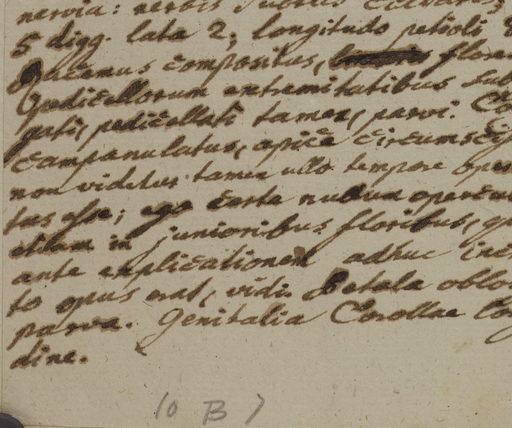 nervia: nervis subtus elevatis
5 digg. lata 2; longitudo petioli
Racemus compositus, flores
pedicellorum extremitatibus sub
gati, pedicellati tamen, parvi. C
campanulatus, apice circumsci
non videtur tamen ullo tempore oper
tus esse; ego certe nullum opercu
etiam in junioribus floribus, q
ante explicationem adhuc inci
to opus erat, vidi. Petala oblon
parva. Genitalia Corollae lon
dine.
(0 B)